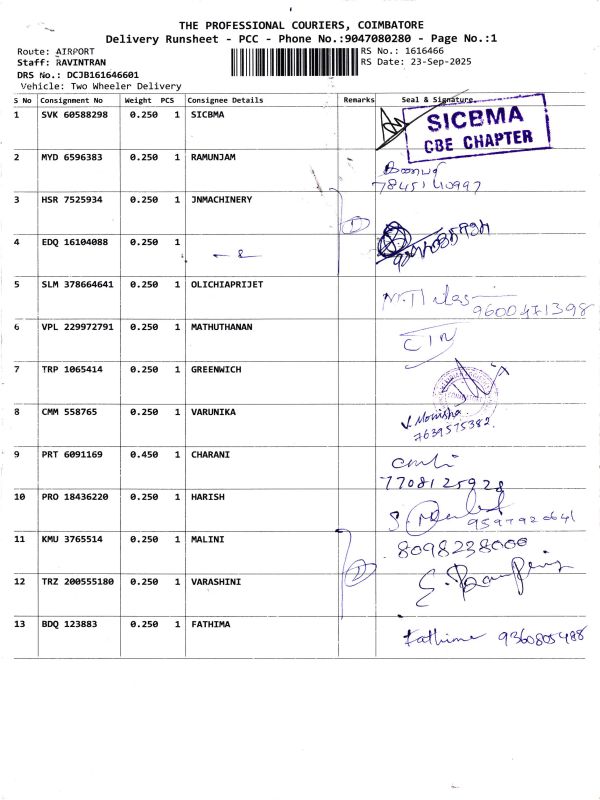 THE PROFESSIONAL COURIERS, COIMBATORE
Delivery Runsheet - PCC - Phone No.:9047080280 - Page No.:1
Route: AIRPORT RS No.: 1616466
Staff: RAVINTRAN RS Date: 23-Sep-2025
DRS No.: DCJB161646601
Vehicle: Two Wheeler Delivery
S No Consignment No Weight PCS Consignee Details Remarks Seal & Signature
1 SVK 60588298 0.250 1 SICBMA SICBMA
CBE CHAPTER
2 MYD 6596383 0.250 1 RAMUNJAM
7845140997
3 HSR 7525934 0.250 1 JNMACHINERY
4 EDQ 16104088 0.250 1
5 SLM 378664641 0.250 1 OLICHIAPRIJET
9600471398
6 VPL 229972791 0.250 1 MATHUTHANAN
7 TRP 1065414 0.250 1 GREENWICH
8 CMM 558765 0.250 1 VARUNIKA V. Monisha
7639575382
9 PRT 6091169 0.450 1 CHARANI
7708125928
10 PRO 18436220 0.250 1 HARISH
11 KMU 3765514 0.250 1 MALINI 8098238000
12 TRZ 200555180 0.250 1 VARASHINI
13 BDQ 123883 0.250 1 FATHIMA Fathima 9360805488